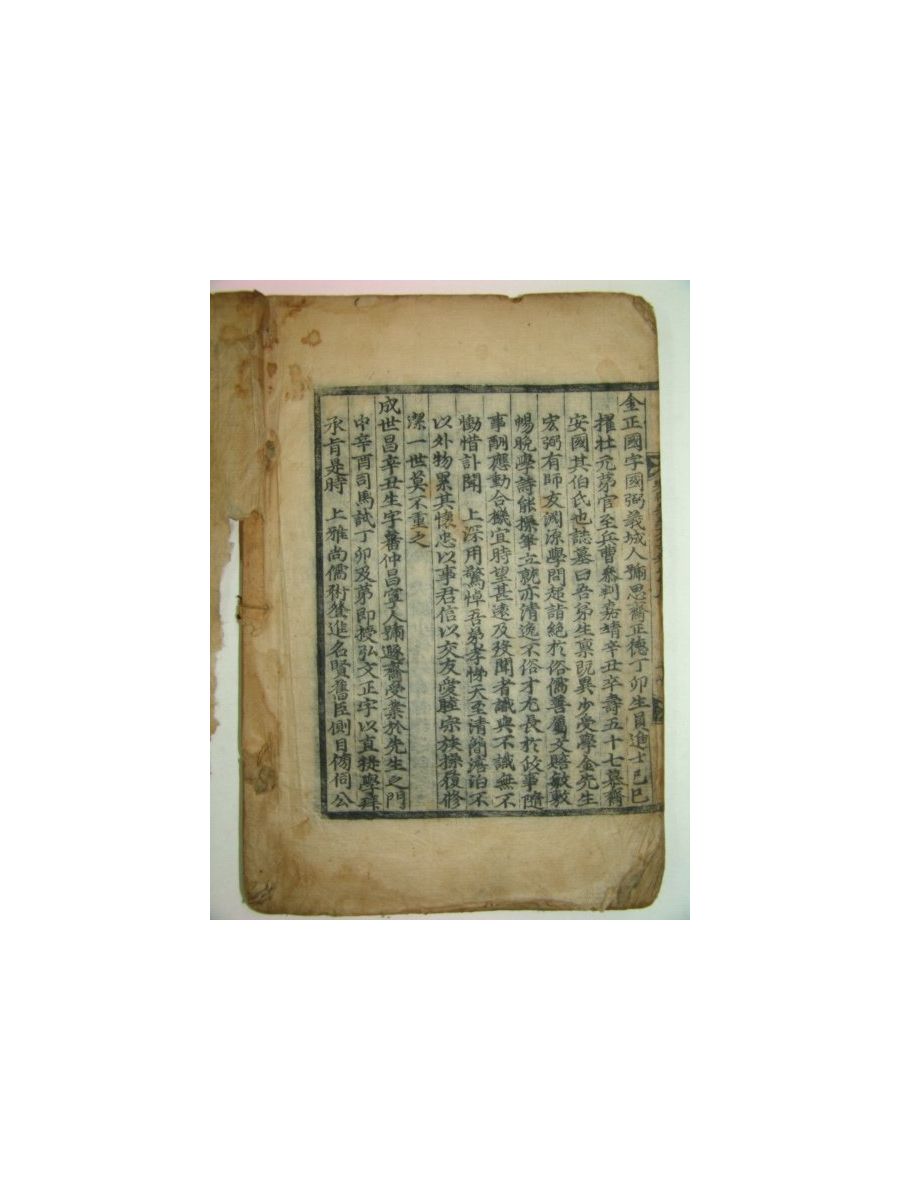 金正國字國弼義城人號思齋正德丁卯生員進士己巳
擢壯元第官至兵曹參判嘉靖辛丑卒壽五十七慕齋
安國其伯氏也誌墓曰吾弟生禀旣異少受學金先生
宏弼有師友淵源學問超詣絶於俗儒善屬文贍敏敷
暢晩學詩能操筆立就亦清逸不俗才尤長於政事隨
事酬應動合機宜時望甚遠及歿聞者識與不識無不
慟惜訃聞 上深用驚悼吾弟孝悌天至清簡澹泊不
以外物累其懷忠以事君信以交友愛睦宗族操履修
潔一世莫不重之
成世昌辛丑生字蕃仲昌寧人號遯齋受業於先生之門
中辛酉司馬試丁卯及第卽授弘文正字以直提學拜
承旨是時 上雅尚儒術獎進名賢舊臣側目傍伺公